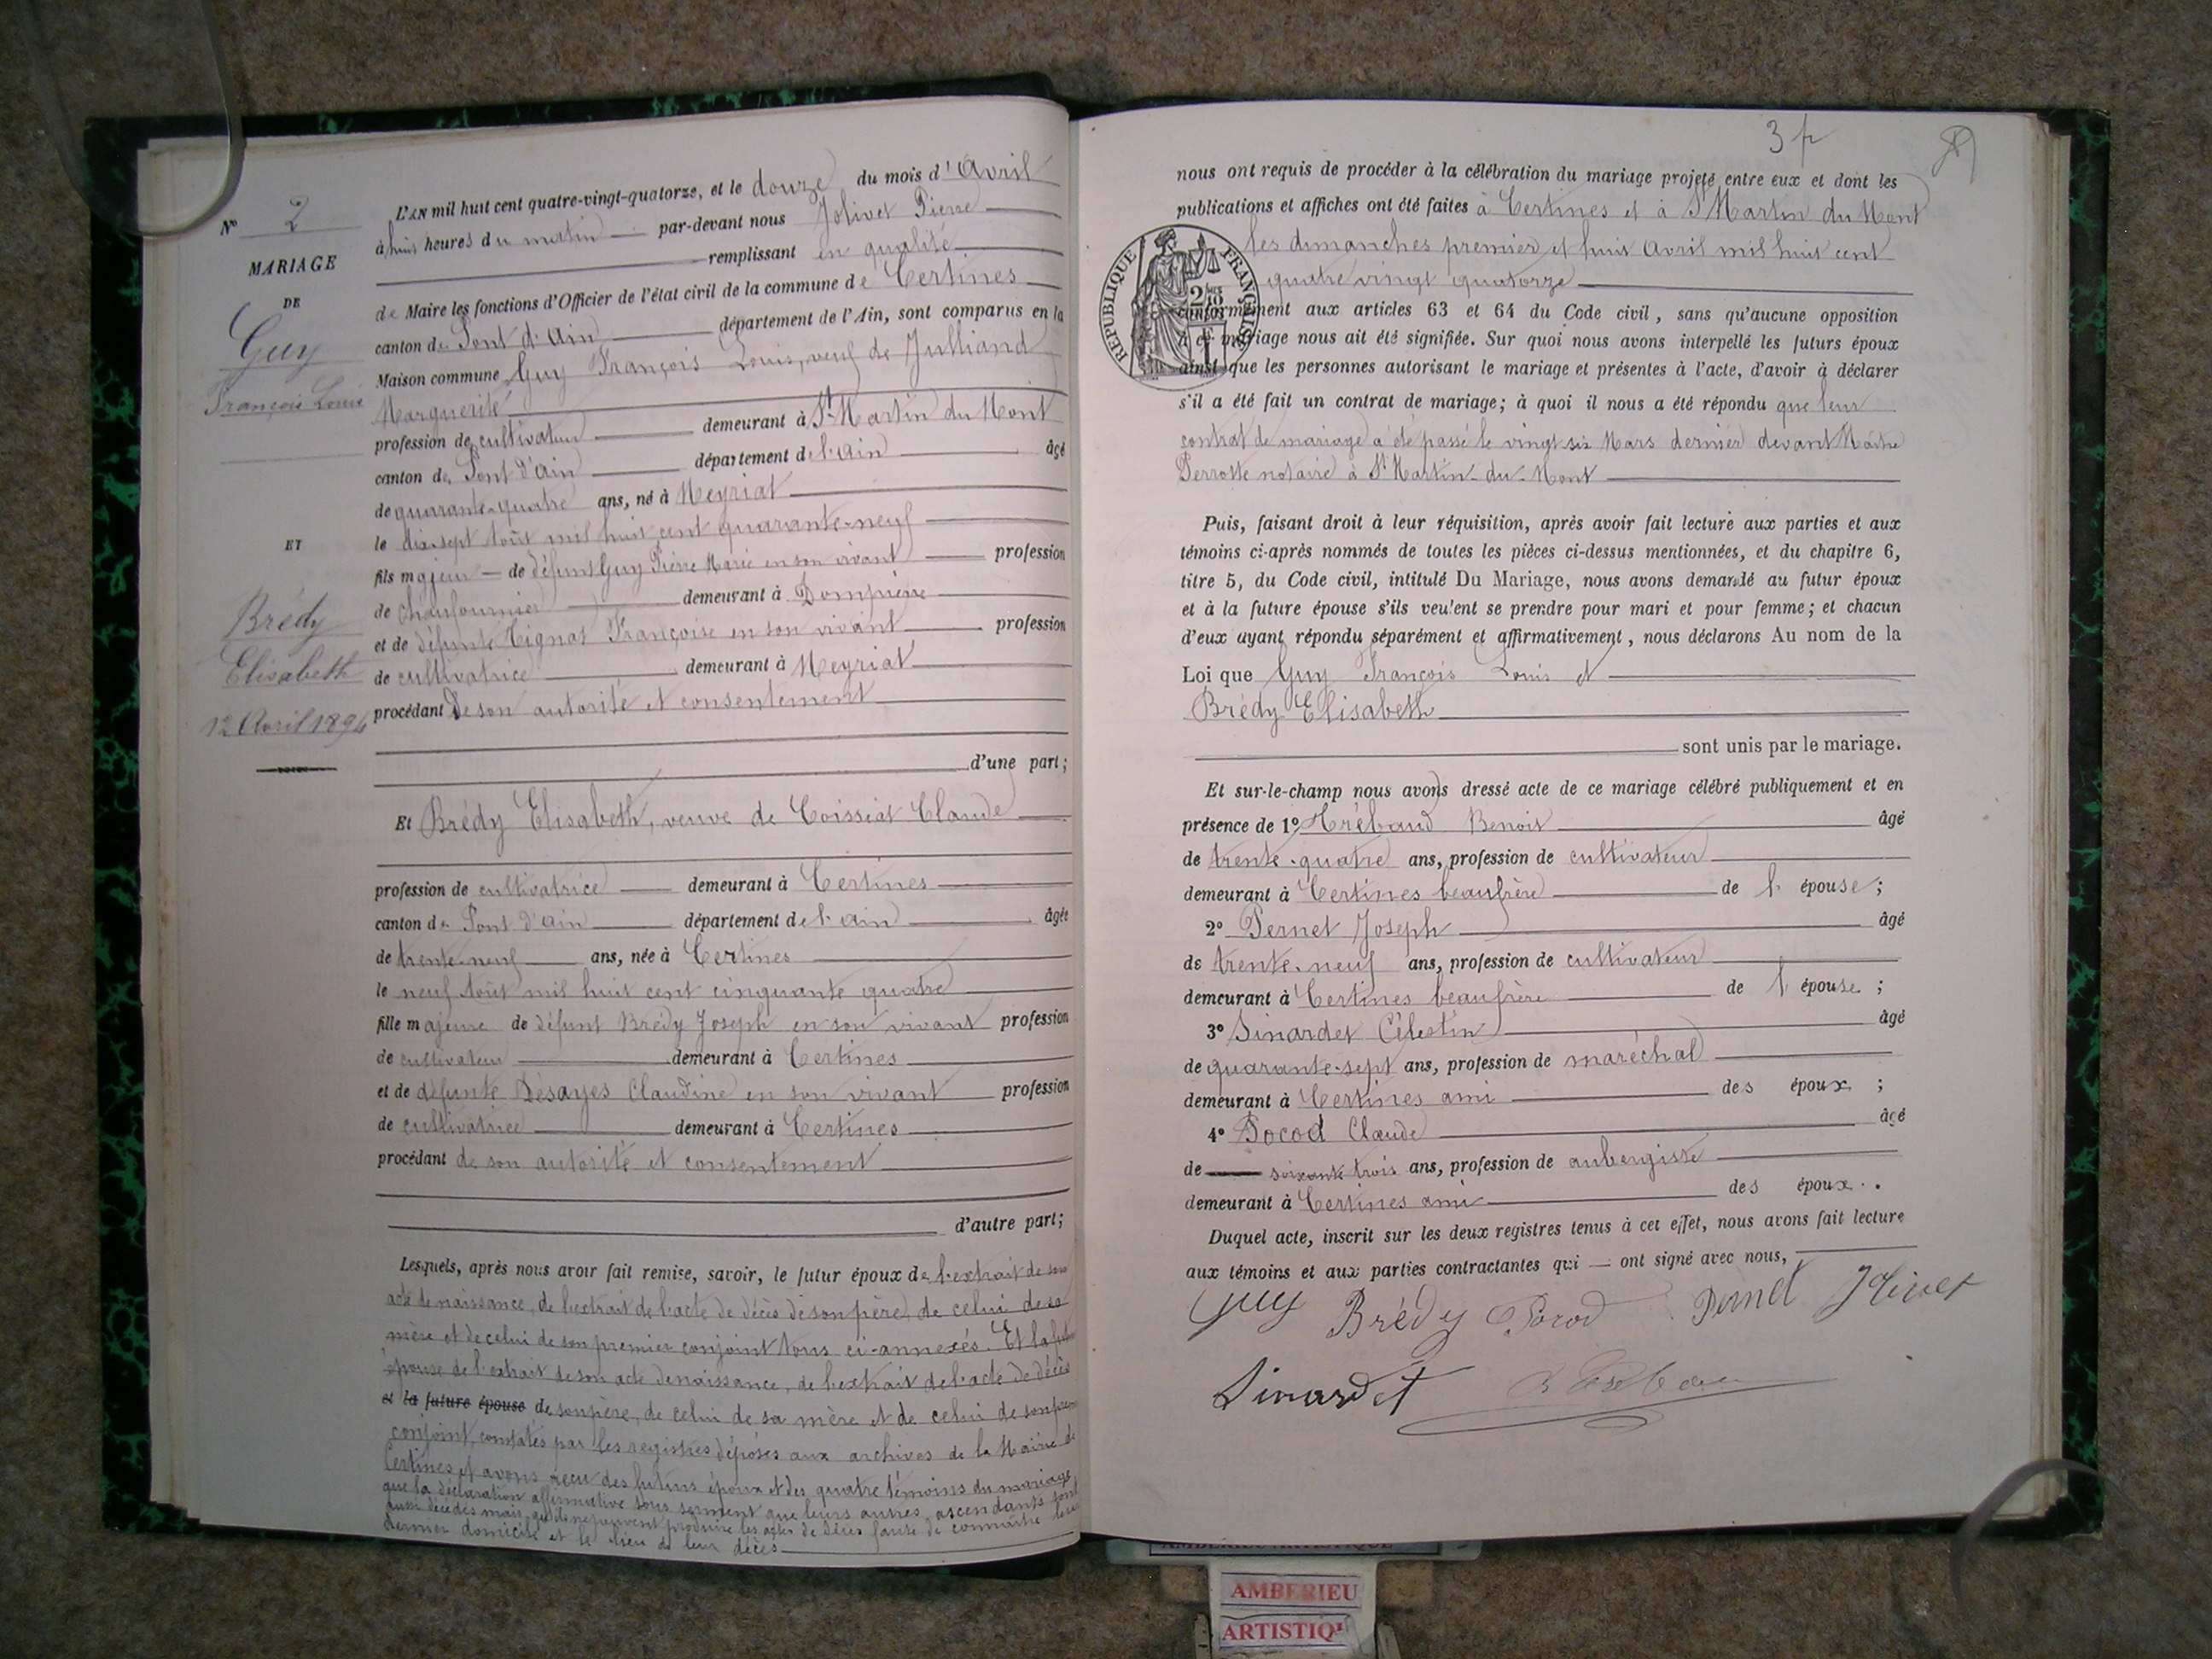 N° 2
MARIAGE
DE
Guy
François Louis
ET
Brédy
Elisabeth
12 Avril 1894
L'AN mil huit cent quatre-vingt-quatorze, et le douze du mois d'Avril
à huit heures du matin par-devant nous Jolivet Pierre
remplissant en qualité
de Maire les fonctions d'Officier de l'état civil de la commune de Certines
canton de Pont d'Ain département de l'Ain, sont comparus en la
Maison commune Guy François Louis, veuf de Julliand
Marguerite
profession de cultivateur demeurant à St Martin du Mont
canton de Pont d'Ain département de l'Ain âgé
de quarante-quatre ans, né à Meyriat
le dix-sept août mil huit cent quarante-neuf
fils majeur de défunt Guy Pierre Marie en son vivant profession
de chaufournier demeurant à Dompierre
et de défunte Tignat Françoise en son vivant profession
de cultivatrice demeurant à Meyriat
procédant de son autorité et consentement
d'une part;
Et Brédy Elisabeth, veuve de Coissiat Claude
profession de cultivatrice demeurant à Certines
canton de Pont d'Ain département de l'Ain âgée
de trente-neuf ans, née à Certines
le neuf août mil huit cent cinquante quatre
fille majeure de défunt Brédy Joseph en son vivant profession
de cultivateur demeurant à Certines
et de défunte Désayes Claudine en son vivant profession
de cultivatrice demeurant à Certines
procédant de son autorité et consentement
d'autre part;
Lesquels, après nous avoir fait remise, savoir, le futur époux de l'extrait de son
acte de naissance, de l'extrait de l'acte de décès de son père, de celui de sa
mère et de celui de son premier conjoint tous ci-annexés. Et la
épouse de l'extrait de son acte de naissance, de l'extrait de l'acte de décès
et la future épouse de son père, de celui de sa mère et de celui de son
conjoint, constatés par les registres déposés aux archives de la Mairie de
Certines et avons reçu des futurs époux et des quatre témoins du mariage
que la déclaration affirmative sous serment que leurs autres ascendants sont
aussi décédés mais qu'ils ne peuvent produire les actes de décès faute de connaître leur
dernier domicile et le lieu de leur décès
3
nous ont requis de procéder à la célébration du mariage projeté entre eux et dont les
publications et affiches ont été faites à Certines et à St Martin du Mont
les dimanches premier et huit Avril mil huit cent
quatre vingt quatorze
RÉPUBLIQUE FRANÇAISE
conformément aux articles 63 et 64 du Code civil, sans qu'aucune opposition
à ce mariage nous ait été signifiée. Sur quoi nous avons interpellé les futurs époux
ainsi que les personnes autorisant le mariage et présentes à l'acte, d'avoir à déclarer
s'il a été fait un contrat de mariage; à quoi il nous a été répondu que leur
contrat de mariage a été passé le vingt six Mars dernier devant Maître
Perrotte notaire à St Martin-du-Mont
Puis, faisant droit à leur réquisition, après avoir fait lecture aux parties et aux
témoins ci-après nommés de toutes les pièces ci-dessus mentionnées, et du chapitre 6,
titre 5, du Code civil, intitulé Du Mariage, nous avons demandé au futur époux
et à la future épouse s'ils veulent se prendre pour mari et pour femme; et chacun
d'eux ayant répondu séparément et affirmativement, nous déclarons Au nom de la
Loi que Guy François Louis et
Brédy Elisabeth
sont unis par le mariage.
Et sur-le-champ nous avons dressé acte de ce mariage célébré publiquement et en
présence de 1° Trébaud Benoit âgé
de trente-quatre ans, profession de cultivateur
demeurant à Certines beaufrère de l'épouse;
2° Pernet Joseph âgé
de trente-neuf ans, profession de cultivateur
demeurant à Certines beaufrère de l'épouse;
3° Sinardet Célestin âgé
de quarante-sept ans, profession de maréchal
demeurant à Certines ami des époux;
4° Bocod Claude âgé
de soixante trois ans, profession de aubergiste
demeurant à Certines ami des époux.
Duquel acte, inscrit sur les deux registres tenus à cet effet, nous avons fait lecture
aux témoins et aux parties contractantes qui ont signé avec nous,
Guy Brédy Bocod Pernet Jolivet
Sinardet
AMBERIEU
ARTISTIQ